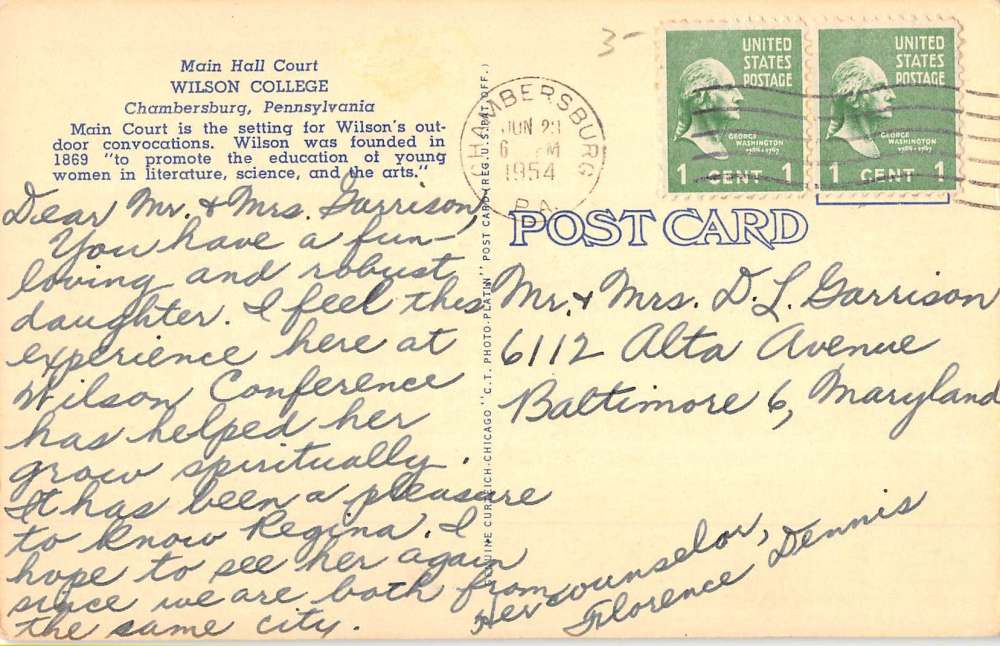 Main Hall Court
WILSON COLLEGE
Chambersburg, Pennsylvania
Main Court is the setting for Wilson's out-
door convocations. Wilson was founded in
1869 "to promote the education of young
women in literature, science, and the arts."
Dear Mr. & Mrs. Garrison,
You have a fun-
loving and robust
daughter. I feel this
experience here at
Wilson Conference
has helped her
grow spiritually.
It has been a pleasure
to know Regina. I
hope to see her again
since we are both from
the same city.
Her counselor,
Florence Dennis
GENUINE CURTEICH-CHICAGO "C.T. PHOTO-PLATIN" POST CARD (REG. U.S. PAT. OFF.)
3-
CHAMBERSBURG
JUN 23
6 M
1954
PA.
UNITED
STATES
POSTAGE
GEORGE
WASHINGTON
1789-1797
1 CENT 1
UNITED
STATES
POSTAGE
GEORGE
WASHINGTON
1789-1797
1 CENT 1
POST CARD
Mr. & Mrs. D. L. Garrison
6112 Alta Avenue
Baltimore 6, Maryland